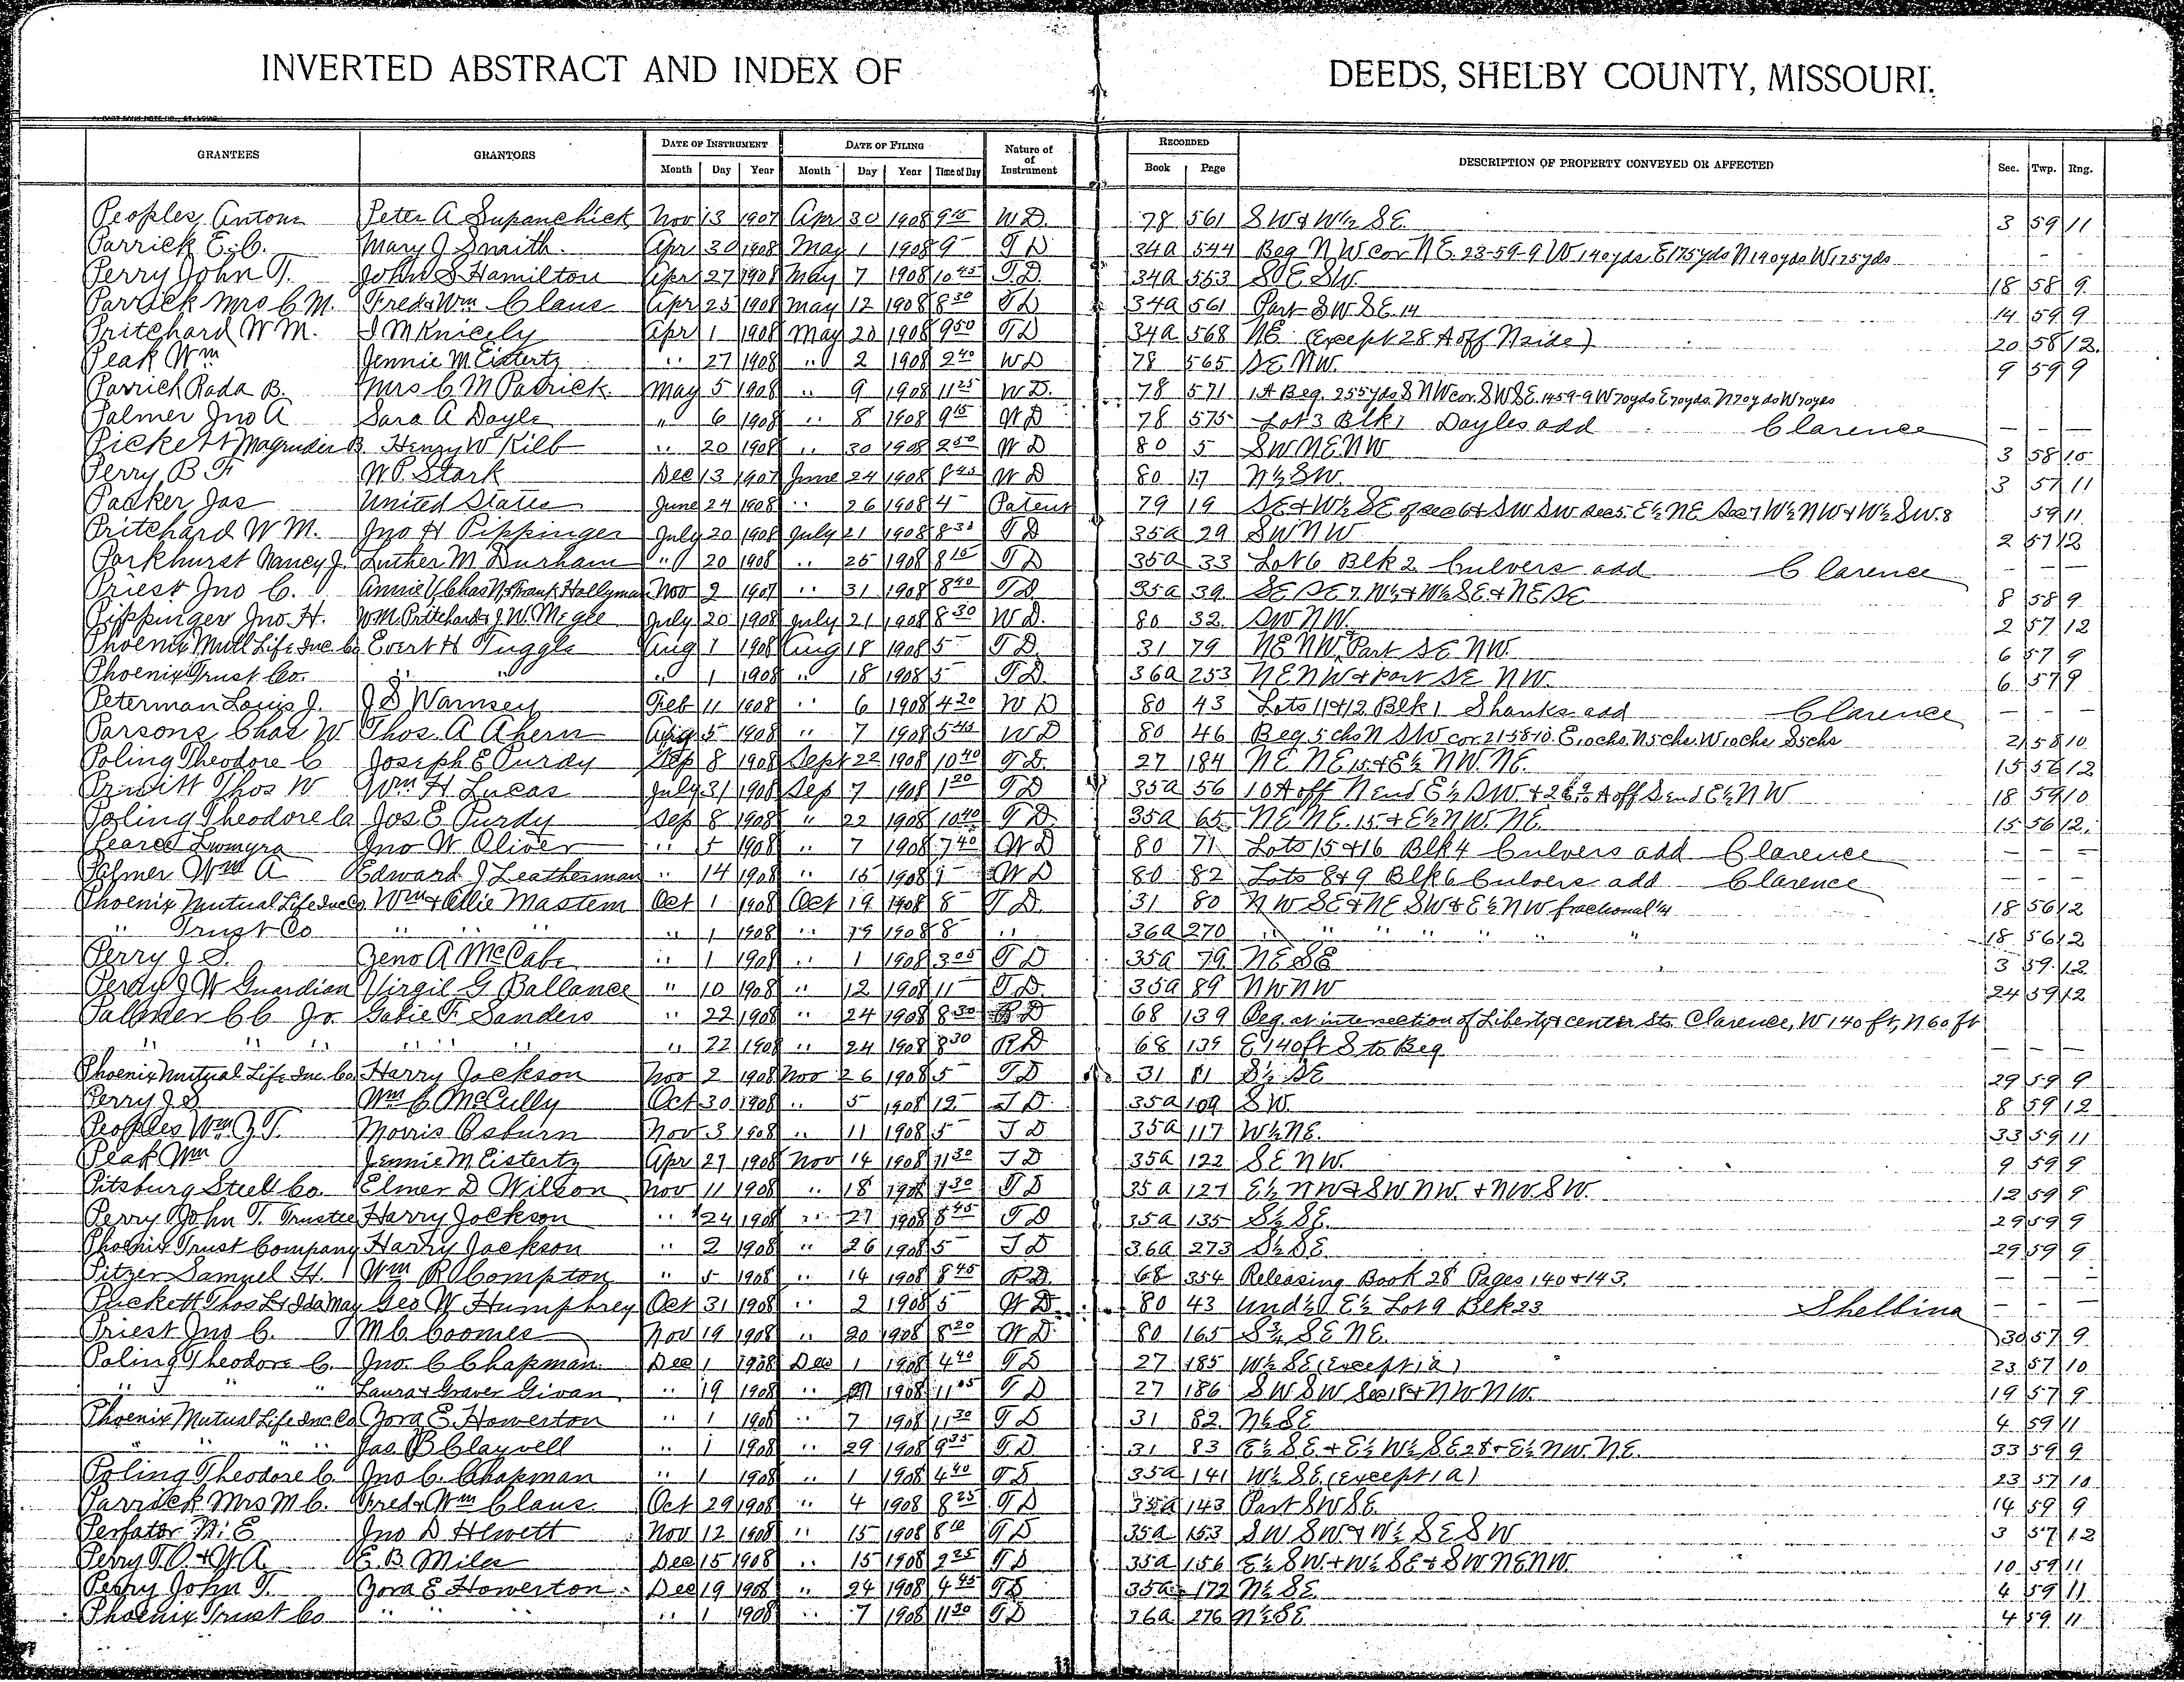 INVERTED ABSTRACT AND INDEX OF DEEDS, SHELBY COUNTY, MISSOURI.
GRANTEES GRANTORS DATE OF INSTRUMENT DATE OF FILING Nature of Instrument RECORDED DESCRIPTION OF PROPERTY CONVEYED OR AFFECTED Sec. Twp. Rng.
Month Day Year Month Day Year Time of Day Book Page
Peoples, Antone Peter A Supanchick Nov 13 1907 Apr 30 1908 9 15 W D. 78 561 SW & W½ SE. 3 59 11
Parrick E. C. Mary J Smith. Apr 30 1908 May 1 1908 9 - T D 34a 544 Beg NW cor NE 23-59-9 W 140yds E175yds N140yds W175yds - -
Perry John T. John S Hamilton Apr 27 1908 May 7 1908 10 45 T. D. 34a 553 SE SW. 18 58 9
Parrick Mrs C M. Fred & Wm Claus Apr 25 1908 May 12 1908 8 30 T D 34a 561 Part SW SE. 14 14 59 9
Pritchard W M. I M Knicely Apr 1 1908 May 20 1908 9 50 T D 34a 568 NE (Except 28 A off N side) 20 58 12.
Peak Wm Jennie M Eistertz " 27 1908 " 2 1908 2 40 W D 78 565 SE NW. 9 59 9
Parrich Rada B. Mrs C M Patrick May 5 1908 " 9 1908 11 25 W D. 78 571 1A Beg. 255yds S NW cor. SWSE. 14 59-9 W 70yds E70yds. N70yds W70yds
Palmer Jno A Sara A Doyle " 6 1908 " 8 1908 9 15 W D 78 575 Lot 3 Blk 1 Doyles add Clarence - - -
Pickett Magruder B. Henry W Kilb " 20 1908 " 30 1908 2 50 W D 80 5 SW NE NW 3 58 10
Perry B F W P. Stark Dec 13 1907 June 24 1908 8 45 W D 80 17 N½ SW. 3 57 11
Packer Jas United States June 24 1908 " 26 1908 4 - Patent 79 19 SE & W½ SE of sec 6 & SW SW sec 5. E½ NE Sec 7 W½ NW & W½ SW. 8 59 11
Pritchard W M. Jno H Pippinger July 20 1908 July 21 1908 8 30 T D 35a 29 SW NW 2 57 12
Parkhurst Nancy J. Luther M Durham " 20 1908 " 25 1908 8 15 T D 35a 33 Lot 6 Blk 2 Culvers add Clarence - - -
Priest Jno C. Annie V Chas N & Frank Hollyman Nov 2 1907 " 31 1908 8 40 T D 35a 39 SE SE 7. W½ & W½ SE & NE SE 8 58 9
Pippinger Jno. H. WM. Pritchard & J W. Mcgle July 20 1908 July 21 1908 8 30 W D. 80 32 SW NW. 2 57 12
Phoenix Mutl Life Ins. Co Evert H Tuggle Aug 1 1908 Aug 18 1908 5 - T. D. 31 79 NE NW, Part SE NW. 6 57 9
Phoenix Trust Co. " " " 1 1908 " 18 1908 5 - T. D. 36a 253 NE NW & Part SE NW. 6 57 9
Peterman Louis J. J S Wamsey Feb 11 1908 " 6 1908 4 20 W D 80 43 Lots 11 & 12 Blk 1 Shanks add Clarence - - -
Parsons Chas W Thos. A Ahern Aug 5 1908 " 7 1908 5 45 W D 80 46 Beg 5 chs N SW cor. 21-58-10. E. 10chs. N5chs. W10chs S5chs 21 58 10
Poling Theodore C Joseph E Purdy Sep 8 1908 Sept 22 1908 10 40 T. D. 27 184 NE NE 15 & E½ NW NE. 15 56 12
Pruitt Thos W Wm H Lucas July 31 1908 Sep 7 1908 1 20 T D 35a 56 10 A off N end E½ SW & A off S end E½ NW 18 59 10
Poling Theodore C Jos. E Purdy Sep 8 1908 " 22 1908 10 40 T D. 35a 65 NE NE. 15 & E½ NW. NE. 15 56 12.
Pearce Jno W Oliver " 5 1908 " 7 1908 7 40 W D 80 71 Lots 15 & 16 Blk 4 Culvers add Clarence - - -
Palmer Wm A Edward J Leatherman " 14 1908 " 15 1908 9 - W D 80 82 Lots 8 & 9 Blk 6 Culvers add Clarence - - -
Phoenix Mutual Life Ins Co. Wm & Ollie Mastem Oct 1 1908 Oct 19 1908 8 - T D. 31 80 NW SE & NE SW & E½ NW fractional ¼ 18 56 12
" Trust Co " " " " 1 1908 " 19 1908 8 " 36a 270 " " " " " " 18 56 12
Perry J S. Zeno A McCabe " 1 1908 " 1 1908 3 05 T D 35a 79 NE SE 3 59 12
Perdy J W Guardian Virgil G Ballance " 10 1908 " 12 1908 11 - T. D. 35a 89 NW NW 24 59 12
Palmer C C Jr. F Sanders " 22 1908 " 24 1908 8 30 R D 68 139 Beg. at intersection of Liberty & center Sts. Clarence, W 140 ft, N 60 ft
" " " " " " 22 1908 " 24 1908 8 30 R D 68 139 E 140 ft S to Beg. - - -
Phoenix Mutual Life Ins. Co Harry Jackson Nov 2 1908 Nov 26 1908 5 - T D 31 81 S½ SE 29 59 9
Perry J S Wm C McCully Oct 30 1908 " 5 1908 12 - T D. 35a 109 SW. 8 59 12
Peoples Wm J. T. Morris Osburn Nov 3 1908 " 11 1908 5 - T D 35a 117 W½ NE. 33 59 11
Peak Wm Jennie M Eistertz Apr 27 1908 Nov 14 1908 11 30 T D 35a 122 SE NW. 9 59 9
Pitsburg Steel Co. Elmer D Wilson Nov 11 1908 " 18 1908 1 30 T D 35a 127 E½ NW & SW NW. & NW. SW. 12 59 9
Perry John T. Trustee Harry Jockson " 24 1908 " 27 1908 8 45 T D 35a 135 S½ SE. 29 59 9
Phoenix Trust Company Harry Jackson " 2 1908 " 26 1908 5 - T D 36a 273 S½ SE. 29 59 9
Pitzer Samuel H. Wm R Compton " 5 1908 " 14 1908 8 45 R D. 68 354 Releasing Book 28 Pages 140 & 143. - - -
Puckett Thos L & Ida May Geo W Humphrey Oct 31 1908 " 2 1908 5 - W D. 80 43 Und ½ E½ Lot 9 Blk 23 Shelbina - - -
Priest Jno C. M C Coomes Nov 19 1908 " 20 1908 8 20 W D 80 165 S¾ SE NE. 30 57 9
Poling Theodore C. Jno. C Chapman. Dec 1 1908 Dec 1 1908 4 40 T D 27 185 W½ SE (Except 1 a) 23 57 10
" " " Laura & Graver Givan " 19 1908 " 1908 11 05 T D 27 186 SW SW Sec 18 & NW NW. 19 57 9
Phoenix Mutual Life Ins Co Zora E. Howerton " 1 1908 " 7 1908 11 30 T D 31 82 N½ SE 4 59 11
" " " " Jas B Clayvell " 1 1908 " 29 1908 9 35 T. D 31 83 E½ SE. & E½ W½ SE 28 & E½ NW. NE. 33 59 9
Poling Theodore C. Jno C. Chapman " 1 1908 " 1 1908 4 40 T D 35a 141 W½ SE. (Except 1 a) 23 57 10
Parrick Mrs M C. Fred & Wm Claus Oct 29 1908 " 4 1908 8 25 T D 35a 143 Part SW SE. 14 59 9
Perfater N. E Jno D Hewett Nov 12 1908 " 15 1908 8 10 T D 35a 153 SW SW. & W½ SE SW 3 57 12
Perry T. O. & Y A. E. B. Miles Dec 15 1908 " 15 1908 2 25 T D 35a 156 E½ SW. & W½ SE & SW NE NW. 10 59 11
Perry John T. Zora E Howerton Dec 19 1908 " 24 1908 4 45 T D 35a 172 N½ SE. 4 59 11
Phoenix Trust Co " " " " 1 1908 " 7 1908 11 30 T D 36a 276 N½ SE. 4 59 11